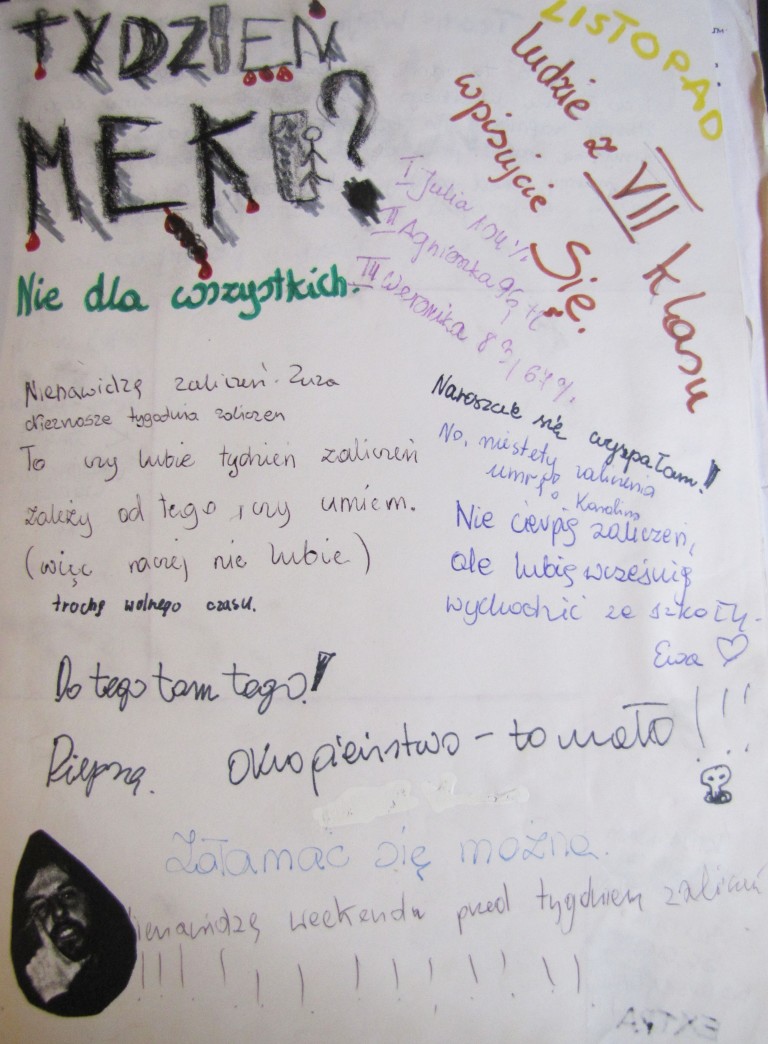 TYDZIEŃ
MĘKI?
Nie dla wszystkich.
LISTOPAD
ludzie z VII klasu
wpisujcie się.
I Julia 104%
II Agnieszka
III Weronika 8
Nienawidzę zaliczeń. Zuza
nieznosze tygodnia zaliczen
To czy lubie tydzień zaliczeń
zależy od tego, czy umiem.
(więc raczej nie lubie)
trochę wolnego czasu.
Nareszcie się wyspałam!
No, niestety zaliczenia
umrę. Karolina
Nie cierpię zaliczeń,
ale lubię wcześnię
wychodzić ze szkoły.
Ewa
Do tego tam tego!
Okropieństwo - to mało!!!
Załamać się można.
nienawidzę weekendu przed tygodniem zaliczeń
EXTRA